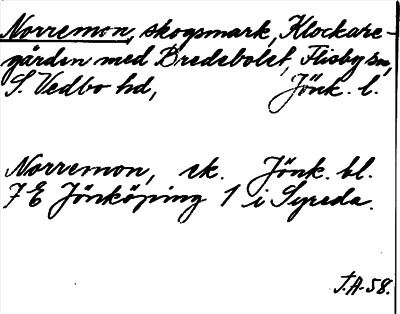 Norremon, skogsmark, Klockare-
gården med Bredebolet, Flisby sn,
S. Vedbo hd, Jönk. l.
Norremon, ek. Jönk. bl.
7 E Jönköping 1 i Syreda.
J.A-58.